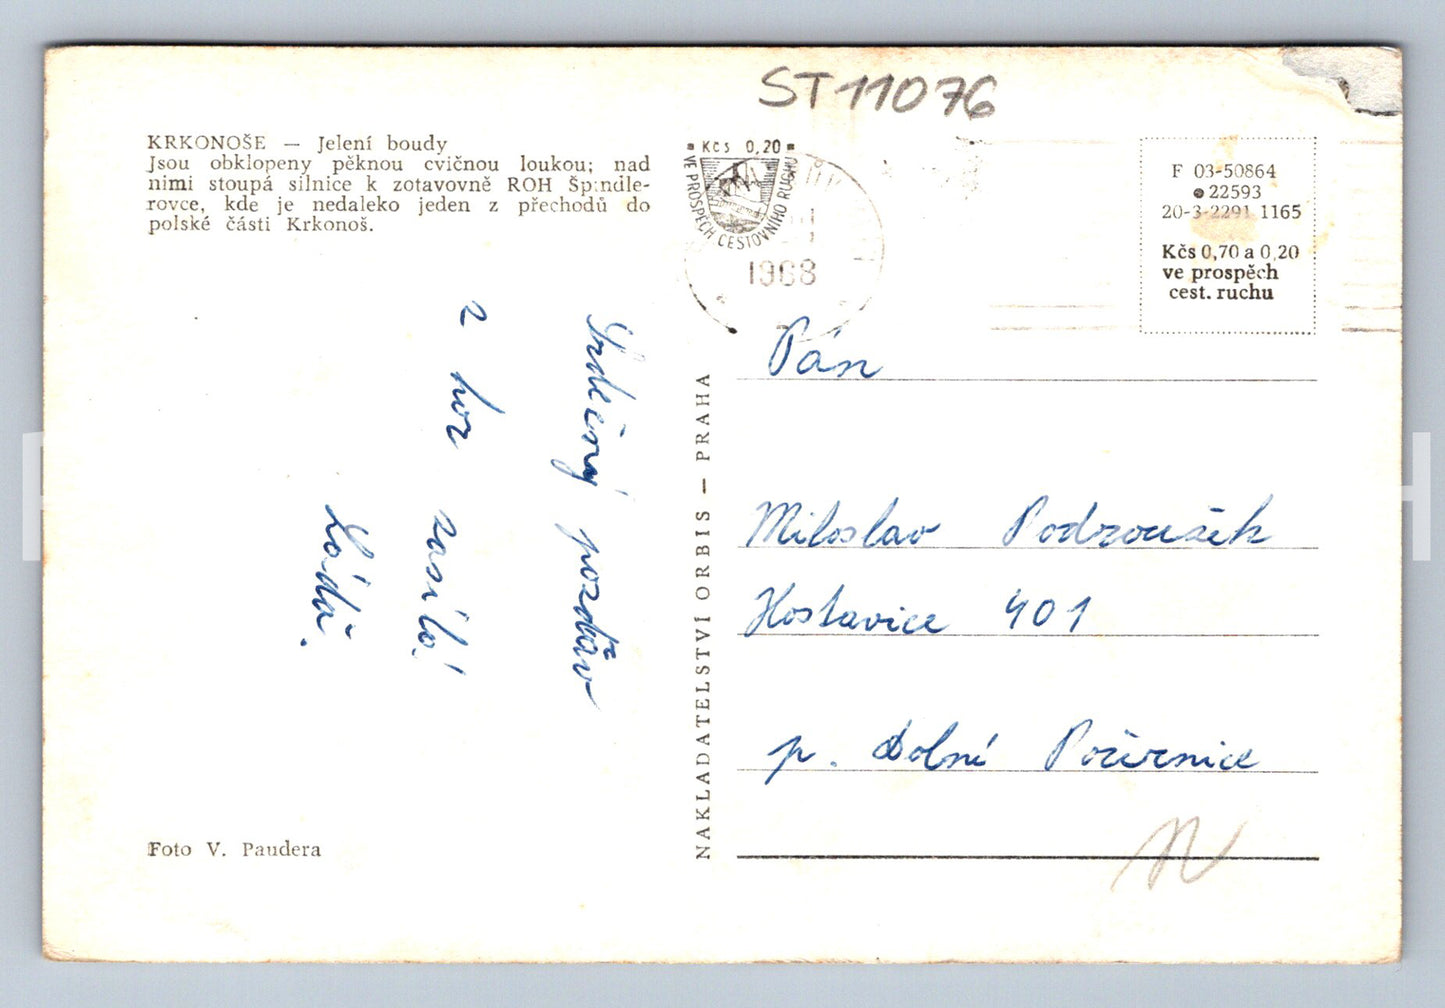 ST11076
KRKONOŠE — Jelení boudy
Jsou obklopeny pěknou cvičnou loukou; nad
nimi stoupá silnice k zotavovně ROH Špindle-
rovce, kde je nedaleko jeden z přechodů do
polské části Krkonoš.
Kčs 0,20
VE PROSPĚCH CESTOVNÍHO RUCHU
1968
F 03-50864
22593
20-3-2291 1165
Kčs 0,70 a 0,20
ve prospěch
cest. ruchu
Srdečný pozdrav
z hor zasílá
Láďa.
NAKLADATELSTVÍ ORBIS — PRAHA
Pán
Miloslav Podroužek
Hostavice 401
p. Dolní Počernice
Foto V. Paudera